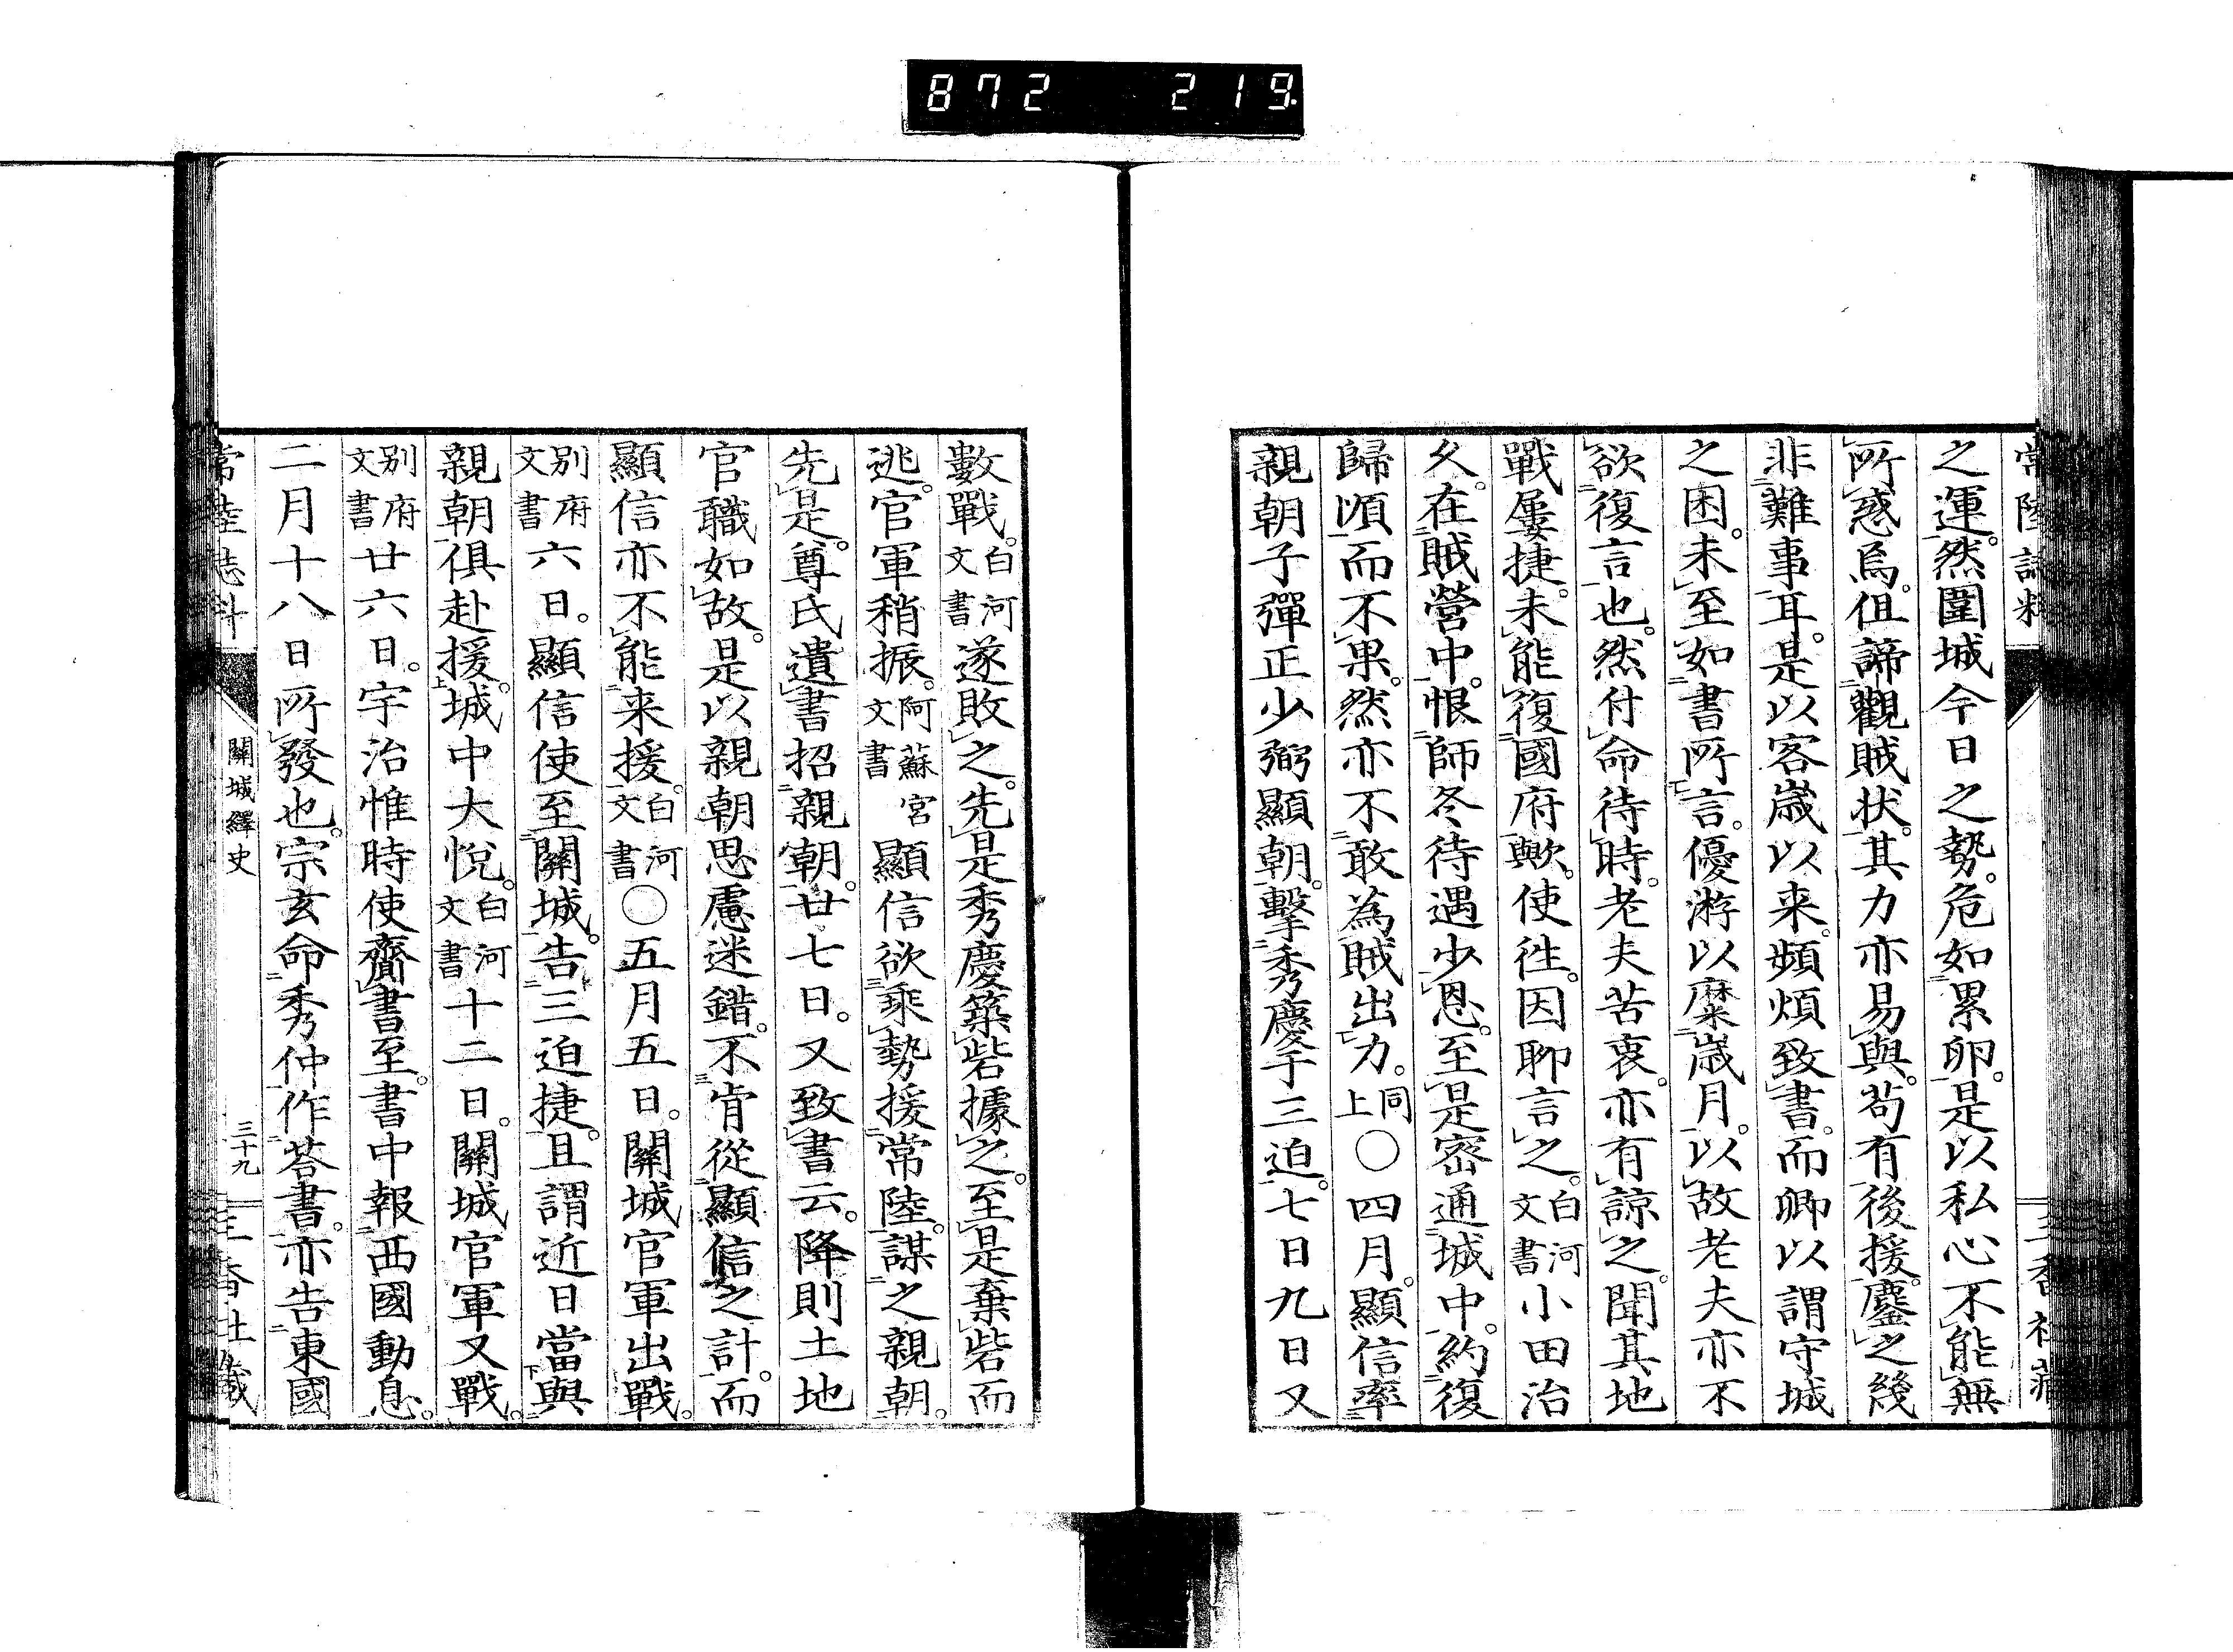 872 219
之運。然圍城今日之勢。危如累卵。是以私心不能無
所惑焉。但諦觀賊状。其力亦易與。苟有後援。鏖之幾
非難事耳。是以客歳以来。頻煩致書。而卿以謂守城
之困。未至如書所言。優游以糜歳月。以故老夫亦不
欲復言也。然付命待時。老夫苦衷。亦有諒之。聞其地
戰屢捷。未能復國府歟。使徃。因聊言之。白河文書小田治
久。在賊營中。恨師冬待遇少恩。至是密通城中。約復
歸順。而不果。然亦不敢為賊出力。同上○四月。顯信率
親朝子彈正少弼顯朝。擊秀慶于三迫。七日九日又
數戰。白河文書遂敗之。先是秀慶築砦據之。至是棄砦而
逃。官軍稍振。阿蘇宮文書顯信欲乘勢援常陸。謀之親朝。
先是。尊氏遺書招親朝。廿七日。又致書云。降則土地
官職如故。是以親朝思慮迷錯。不肯從顯信之計。而
顯信亦不能来援。白河文書○五月五日。關城官軍出戰。
別府文書六日。顯信使至關城。告三迫捷。且謂近日當與
親朝俱赴援。城中大悅。白河文書十二日。關城官軍又戰。
別府文書廿六日。宇治惟時使齎書至。書中報西國動息。
二月十八日所發也。宗玄命秀仲作荅書。亦告東國
關城繹史
三十九